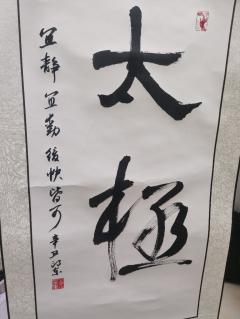 太極
宜静宜動緩快皆可辛丑